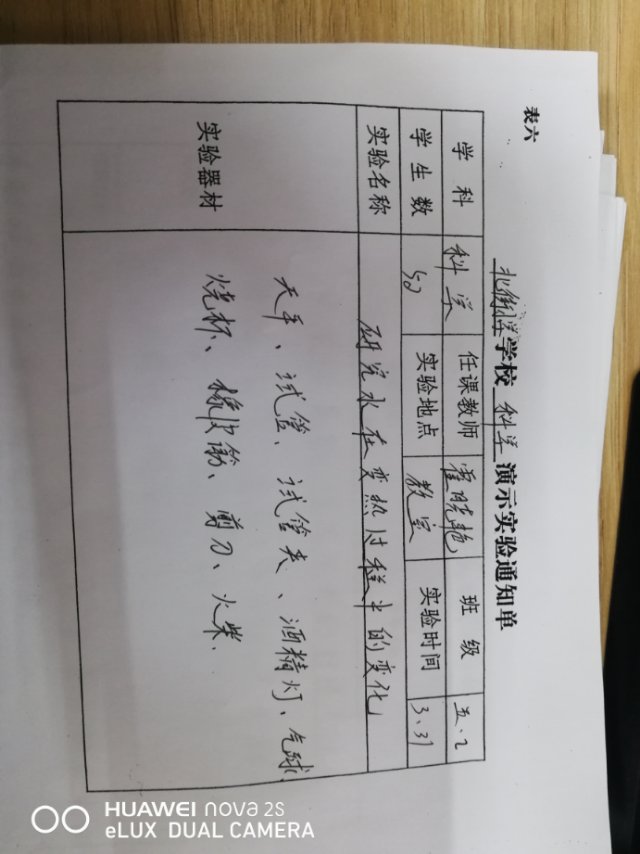 表六
北街小学学校 科学 演示实验通知单
学科 科学 任课教师 霍晓艳 班级 五.2
学生数 50 实验地点 教室 实验时间 3.31
实验名称 研究水在变热过程中的变化
实验器材 天平、试管、试管夹、酒精灯、气球、
烧杯、橡皮筋、剪刀、火柴、
HUAWEI nova 2s
eLUX DUAL CAMERA